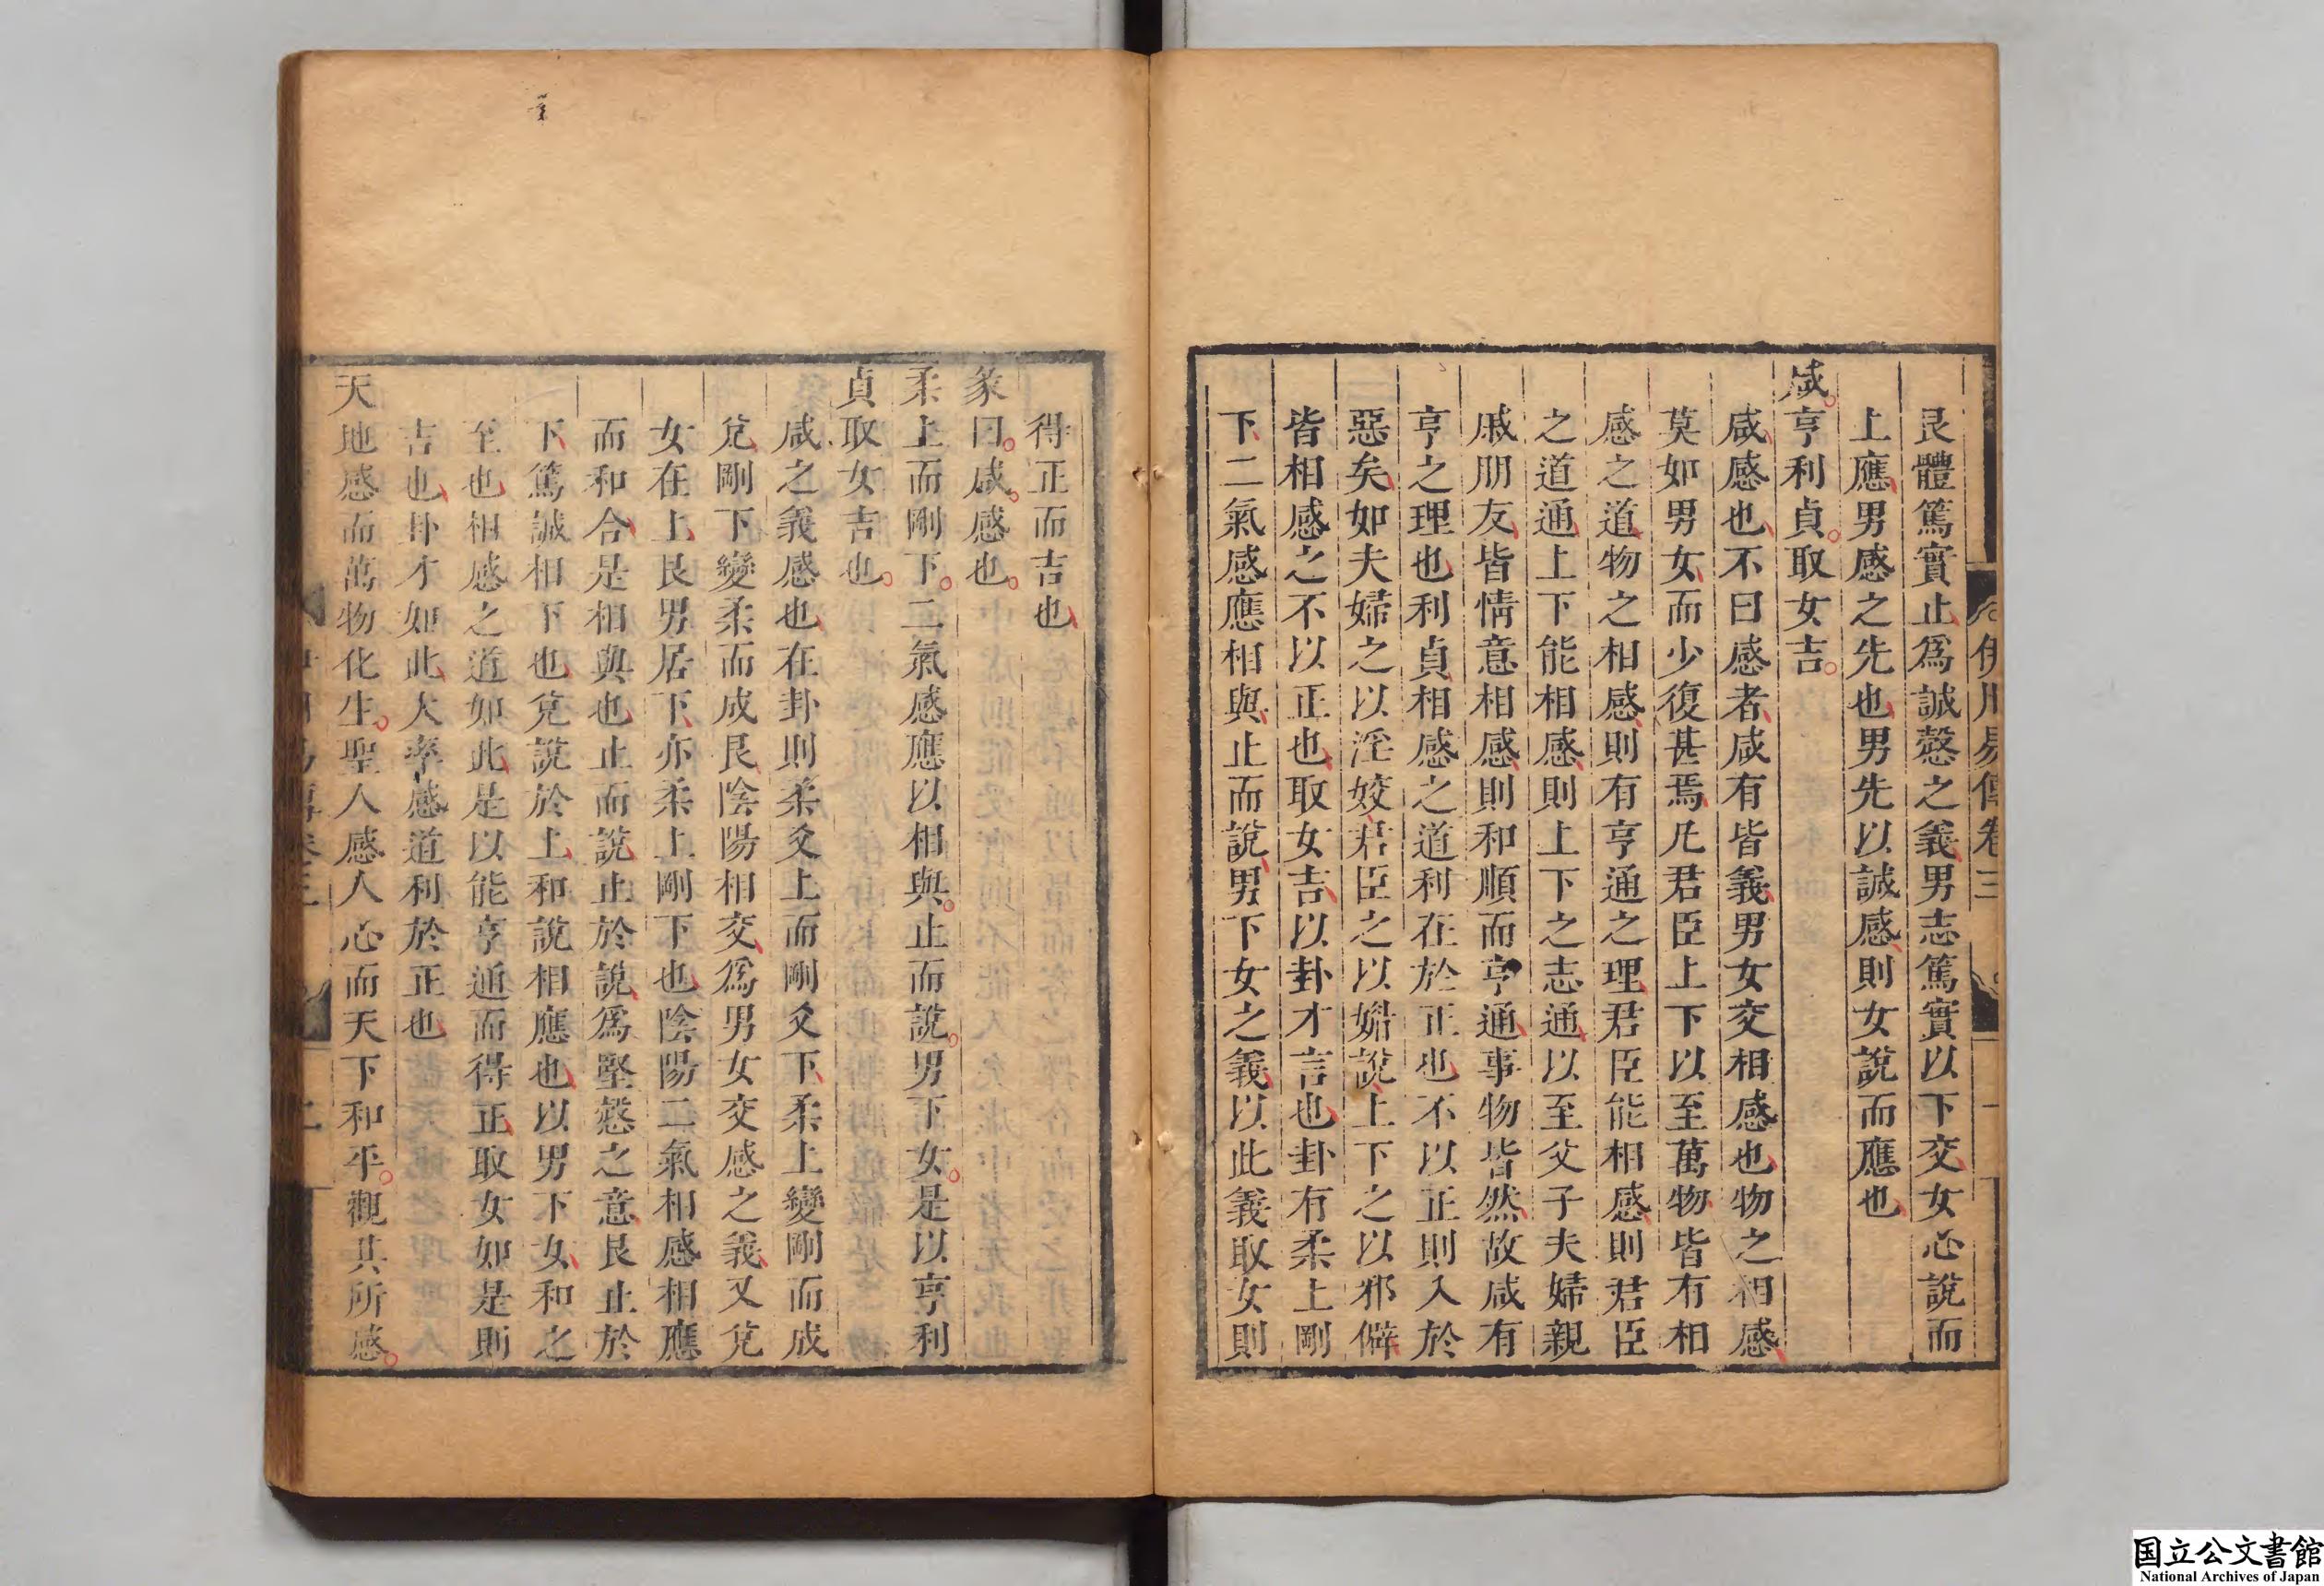 艮體篤實止爲誠慤之義男志篤實以下交女心說而
上應男感之先也男先以誠感則女說而應也
咸亨利貞取女吉
咸感也不曰感者咸有皆義男女交相感也物之相感
莫如男女而少復甚焉凡君臣上下以至萬物皆有相
感之道物之相感則有亨通之理君臣能相感則君臣
之道通上下能相感則上下之志通以至父子夫婦親
戚朋友皆情意相感則和順而亨通事物皆然故咸有
亨之理也利貞相感之道利在於正也不以正則入於
惡矣如夫婦之以淫姣君臣之以媚說上下之以邪僻
皆相感之不以正也取女吉以卦才言也卦有柔上剛
下二氣感應相與止而說男下女之義以此義取女則
伊川易傳卷三
一
得正而吉也
彖曰咸感也
柔上而剛下二氣感應以相與止而說男下女是以亨利
貞取女吉也
咸之義感也在卦則柔爻上而剛爻下柔上變剛而成
兌剛下變柔而成艮陰陽相交爲男女交感之義又兌
女在上艮男居下亦柔上剛下也陰陽二氣相感相應
而和合是相與也止而說止於說爲堅慤之意艮止於
下篤誠相下也兌說於上和說相應也以男下女和之
至也相感之道如此是以能亨通而得正取女如是則
吉也卦才如此大率感道利於正也
天地感而萬物化生聖人感人心而天下和平觀其所感
二
国立公文書館
National Archives of Japan